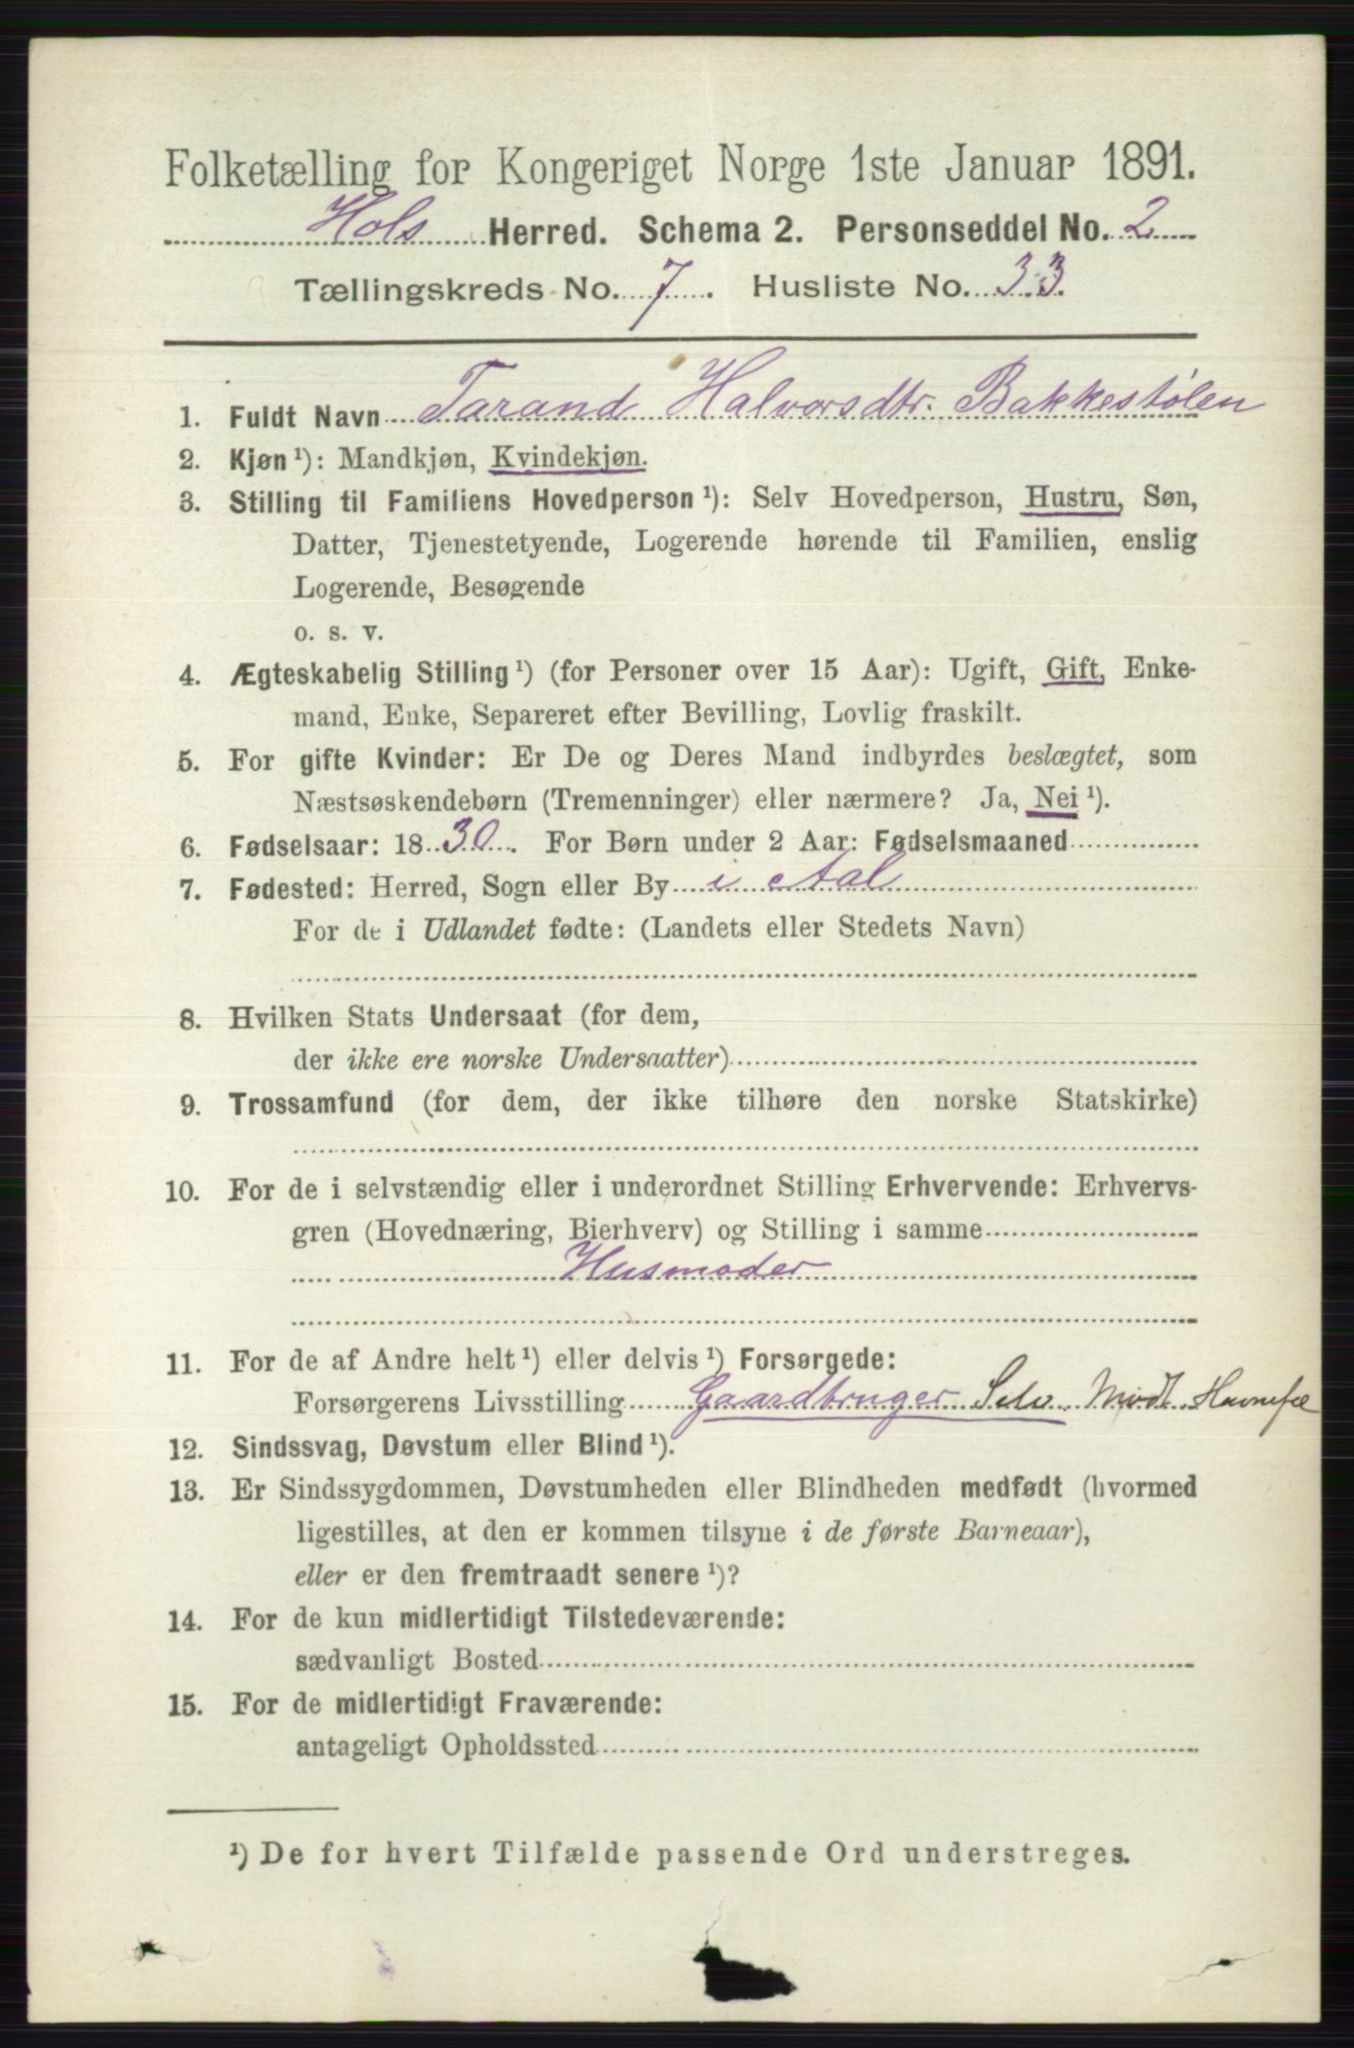 Folketælling for Kongeriget Norge 1ste Januar 1891.
Hols Herred. Schema 2. Personseddel No. 2
Tællingskreds No. 7. Husliste No. 33.
1. Fuldt Navn Tarand Halvorsdtr. Bakkestølen
2. Kjøn ¹): Mandkjøn, Kvindekjøn.
3. Stilling til Familiens Hovedperson ¹): Selv Hovedperson, Hustru, Søn,
Datter, Tjenestetyende, Logerende hørende til Familien, enslig
Logerende, Besøgende
o. s. v.
4. Ægteskabelig Stilling ¹) (for Personer over 15 Aar): Ugift, Gift, Enke-
mand, Enke, Separeret efter Bevilling, Lovlig fraskilt.
5. For gifte Kvinder: Er De og Deres Mand indbyrdes beslægtet, som
Næstsøskendebørn (Tremenninger) eller nærmere? Ja, Nei ¹).
6. Fødselsaar: 1830. For Børn under 2 Aar: Fødselsmaaned
7. Fødested: Herred, Sogn eller By i Aal
For de i Udlandet fødte: (Landets eller Stedets Navn)
8. Hvilken Stats Undersaat (for dem,
der ikke ere norske Undersaatter)
9. Trossamfund (for dem, der ikke tilhøre den norske Statskirke)
10. For de i selvstændig eller i underordnet Stilling Erhvervende: Erhvervs-
gren (Hovednæring, Bierhverv) og Stilling i samme
Husmoder
11. For de af Andre helt ¹) eller delvis ¹) Forsørgede:
Forsørgerens Livsstilling Gaardbruger Selv
12. Sindssvag, Døvstum eller Blind ¹).
13. Er Sindssygdommen, Døvstumheden eller Blindheden medfødt (hvormed
ligestilles, at den er kommen tilsyne i de første Barneaar),
eller er den fremtraadt senere ¹)?
14. For de kun midlertidigt Tilstedeværende:
sædvanligt Bosted
15. For de midlertidigt Fraværende:
antageligt Opholdssted
¹) De for hvert Tilfælde passende Ord understreges.